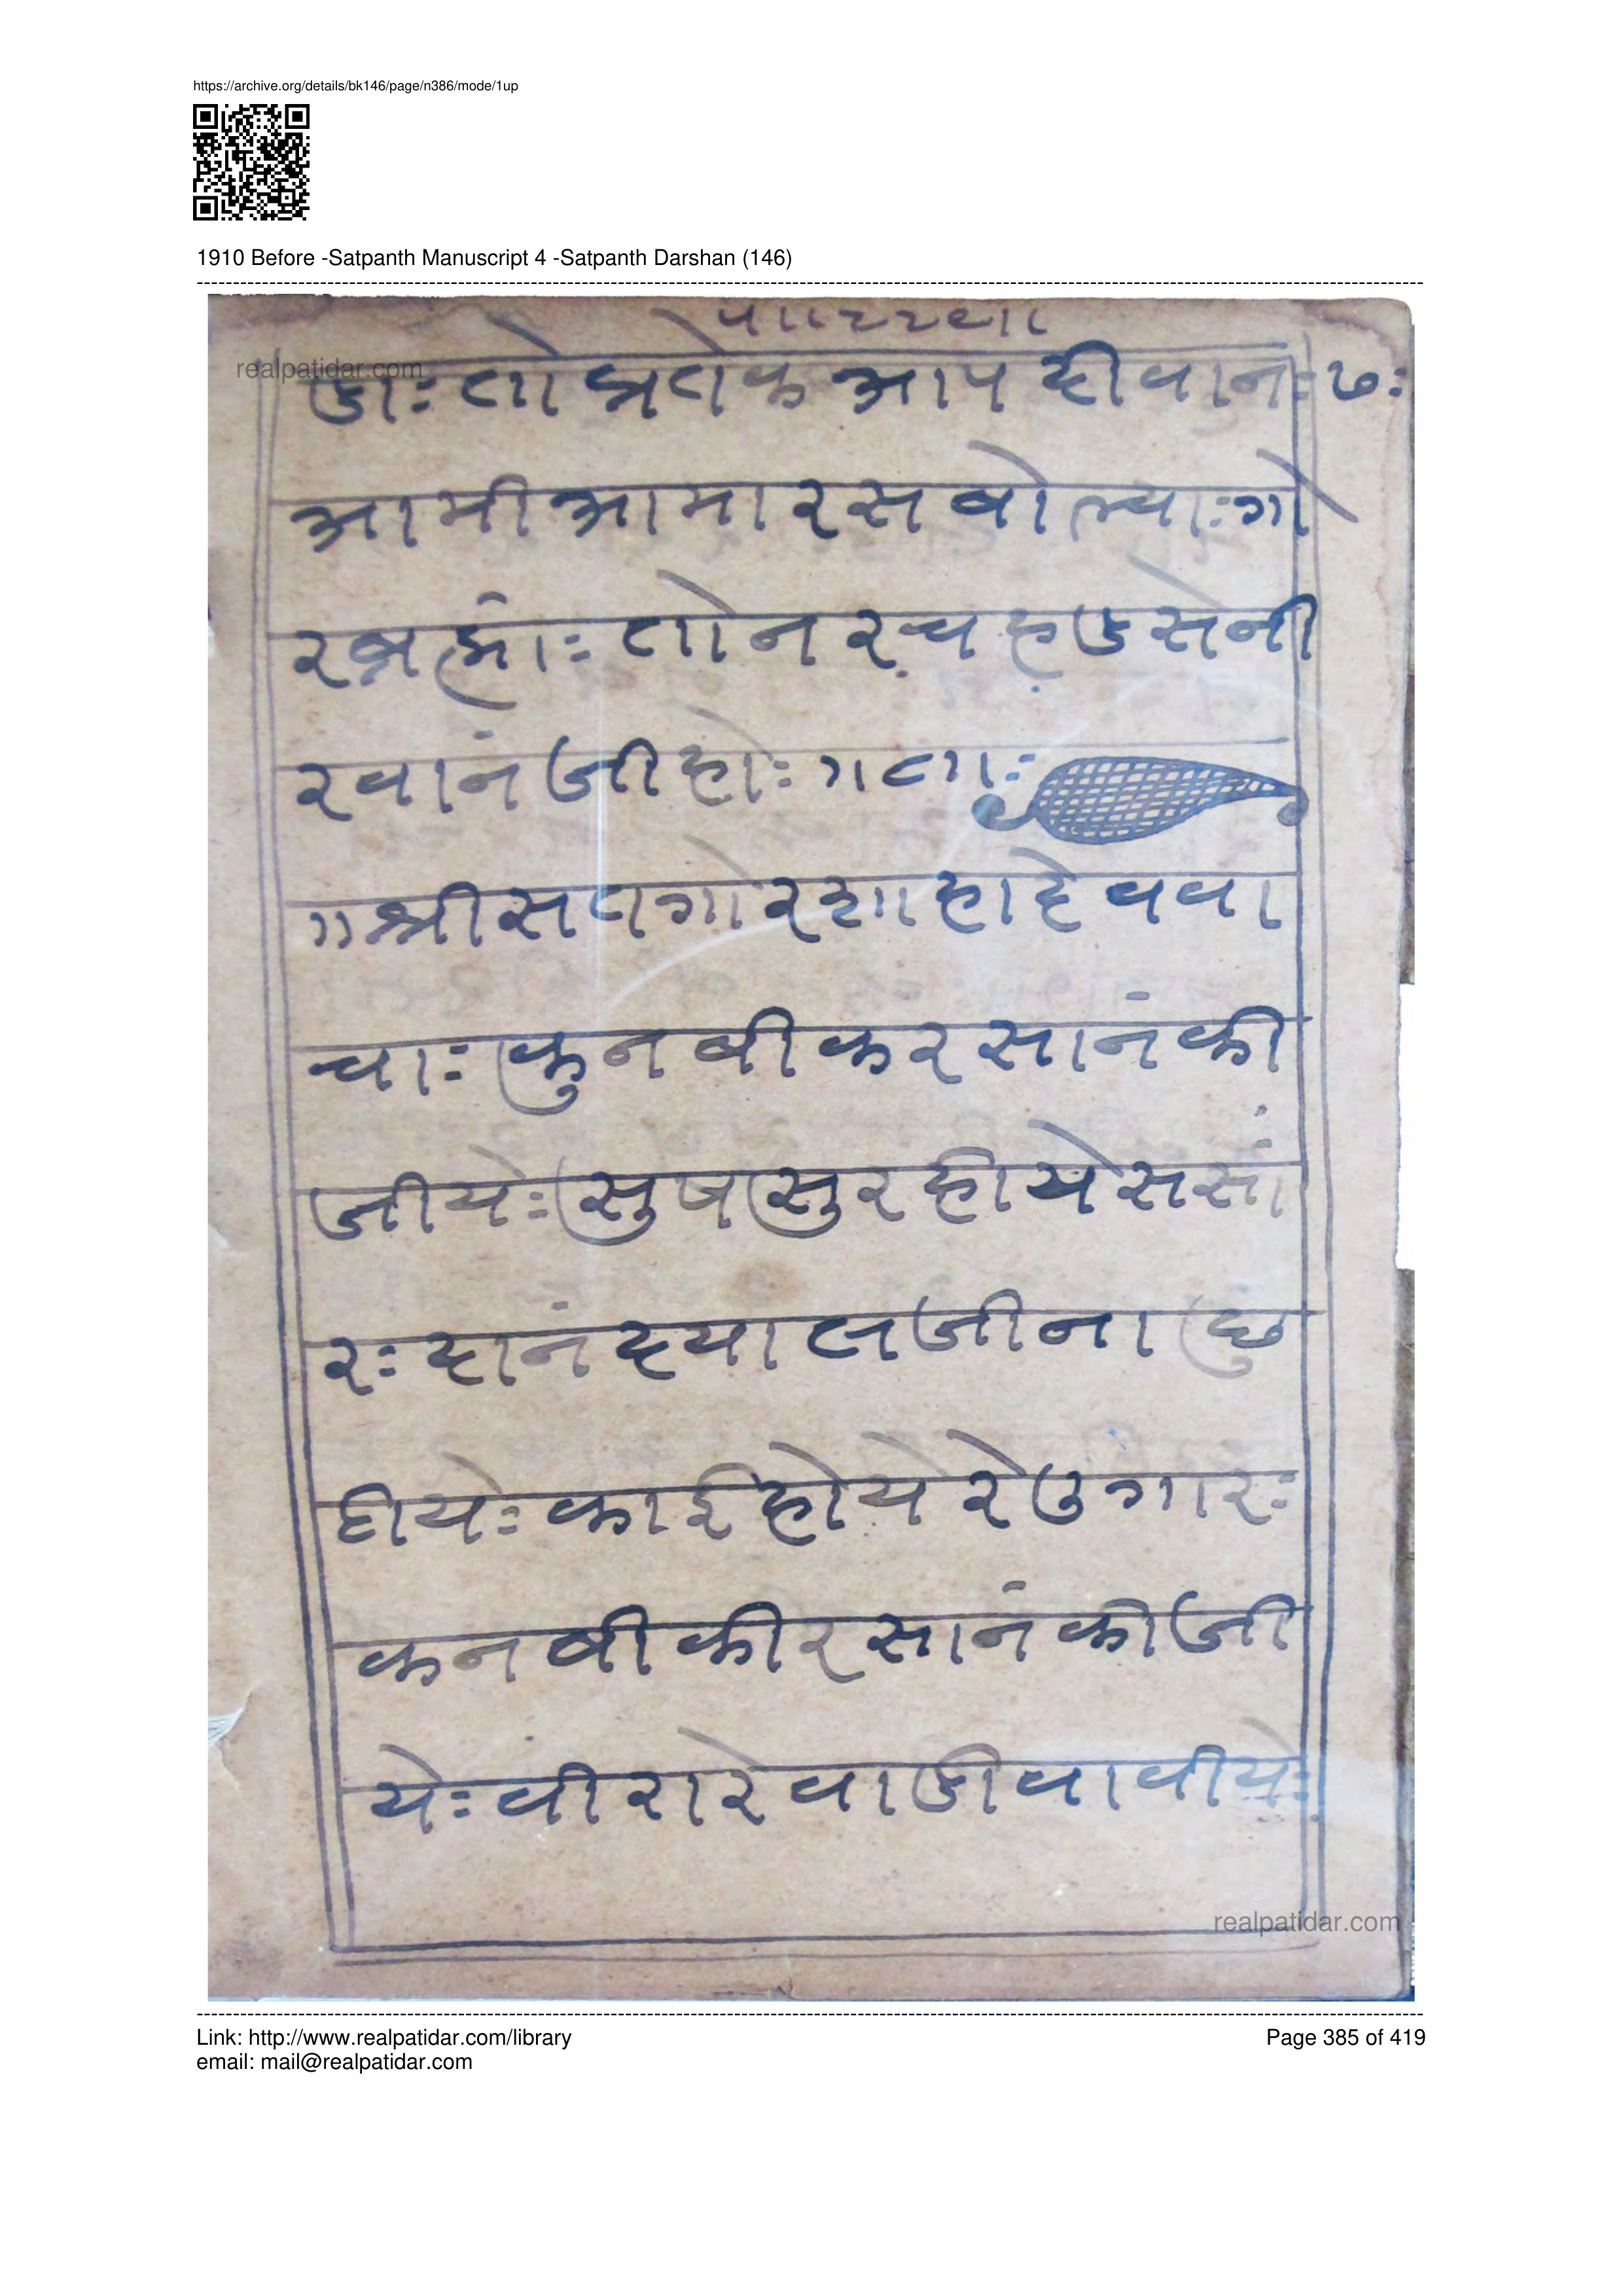 https://archive.org/details/bk146/page/n386/mode/1up
1910 Before -Satpanth Manuscript 4 -Satpanth Darshan (146)
realpatidar.com
तो आप दीवान:७:
आमी आमारस बोल्या:गो
तो नर
रवानंजी हो:
॥श्री सतगोर शाहादेव वा
चा: कुनबी करसानं की
जीये: सुष सुर हीये ससां
र: दानं दयालजी ना छु
टीये: काई होये रे उगार:
कनबी कीरसानं कीजी
ये: वीरा रे वाडी वावीये:
realpatidar.com
Link: http://www.realpatidar.com/library
Page 385 of 419
email: mail@realpatidar.com